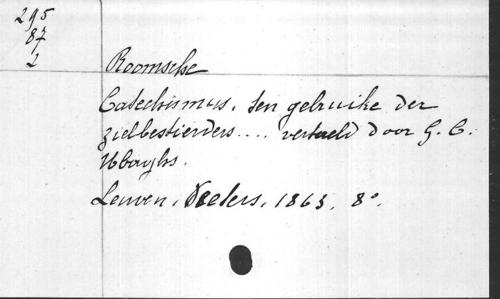 295
87
2
Roomsche
Catechismus, ten gebruike der
zielbestierders .... vertaeld door G. C.
Ubaghs.
Leuven, Peeters, 1863, 8°.